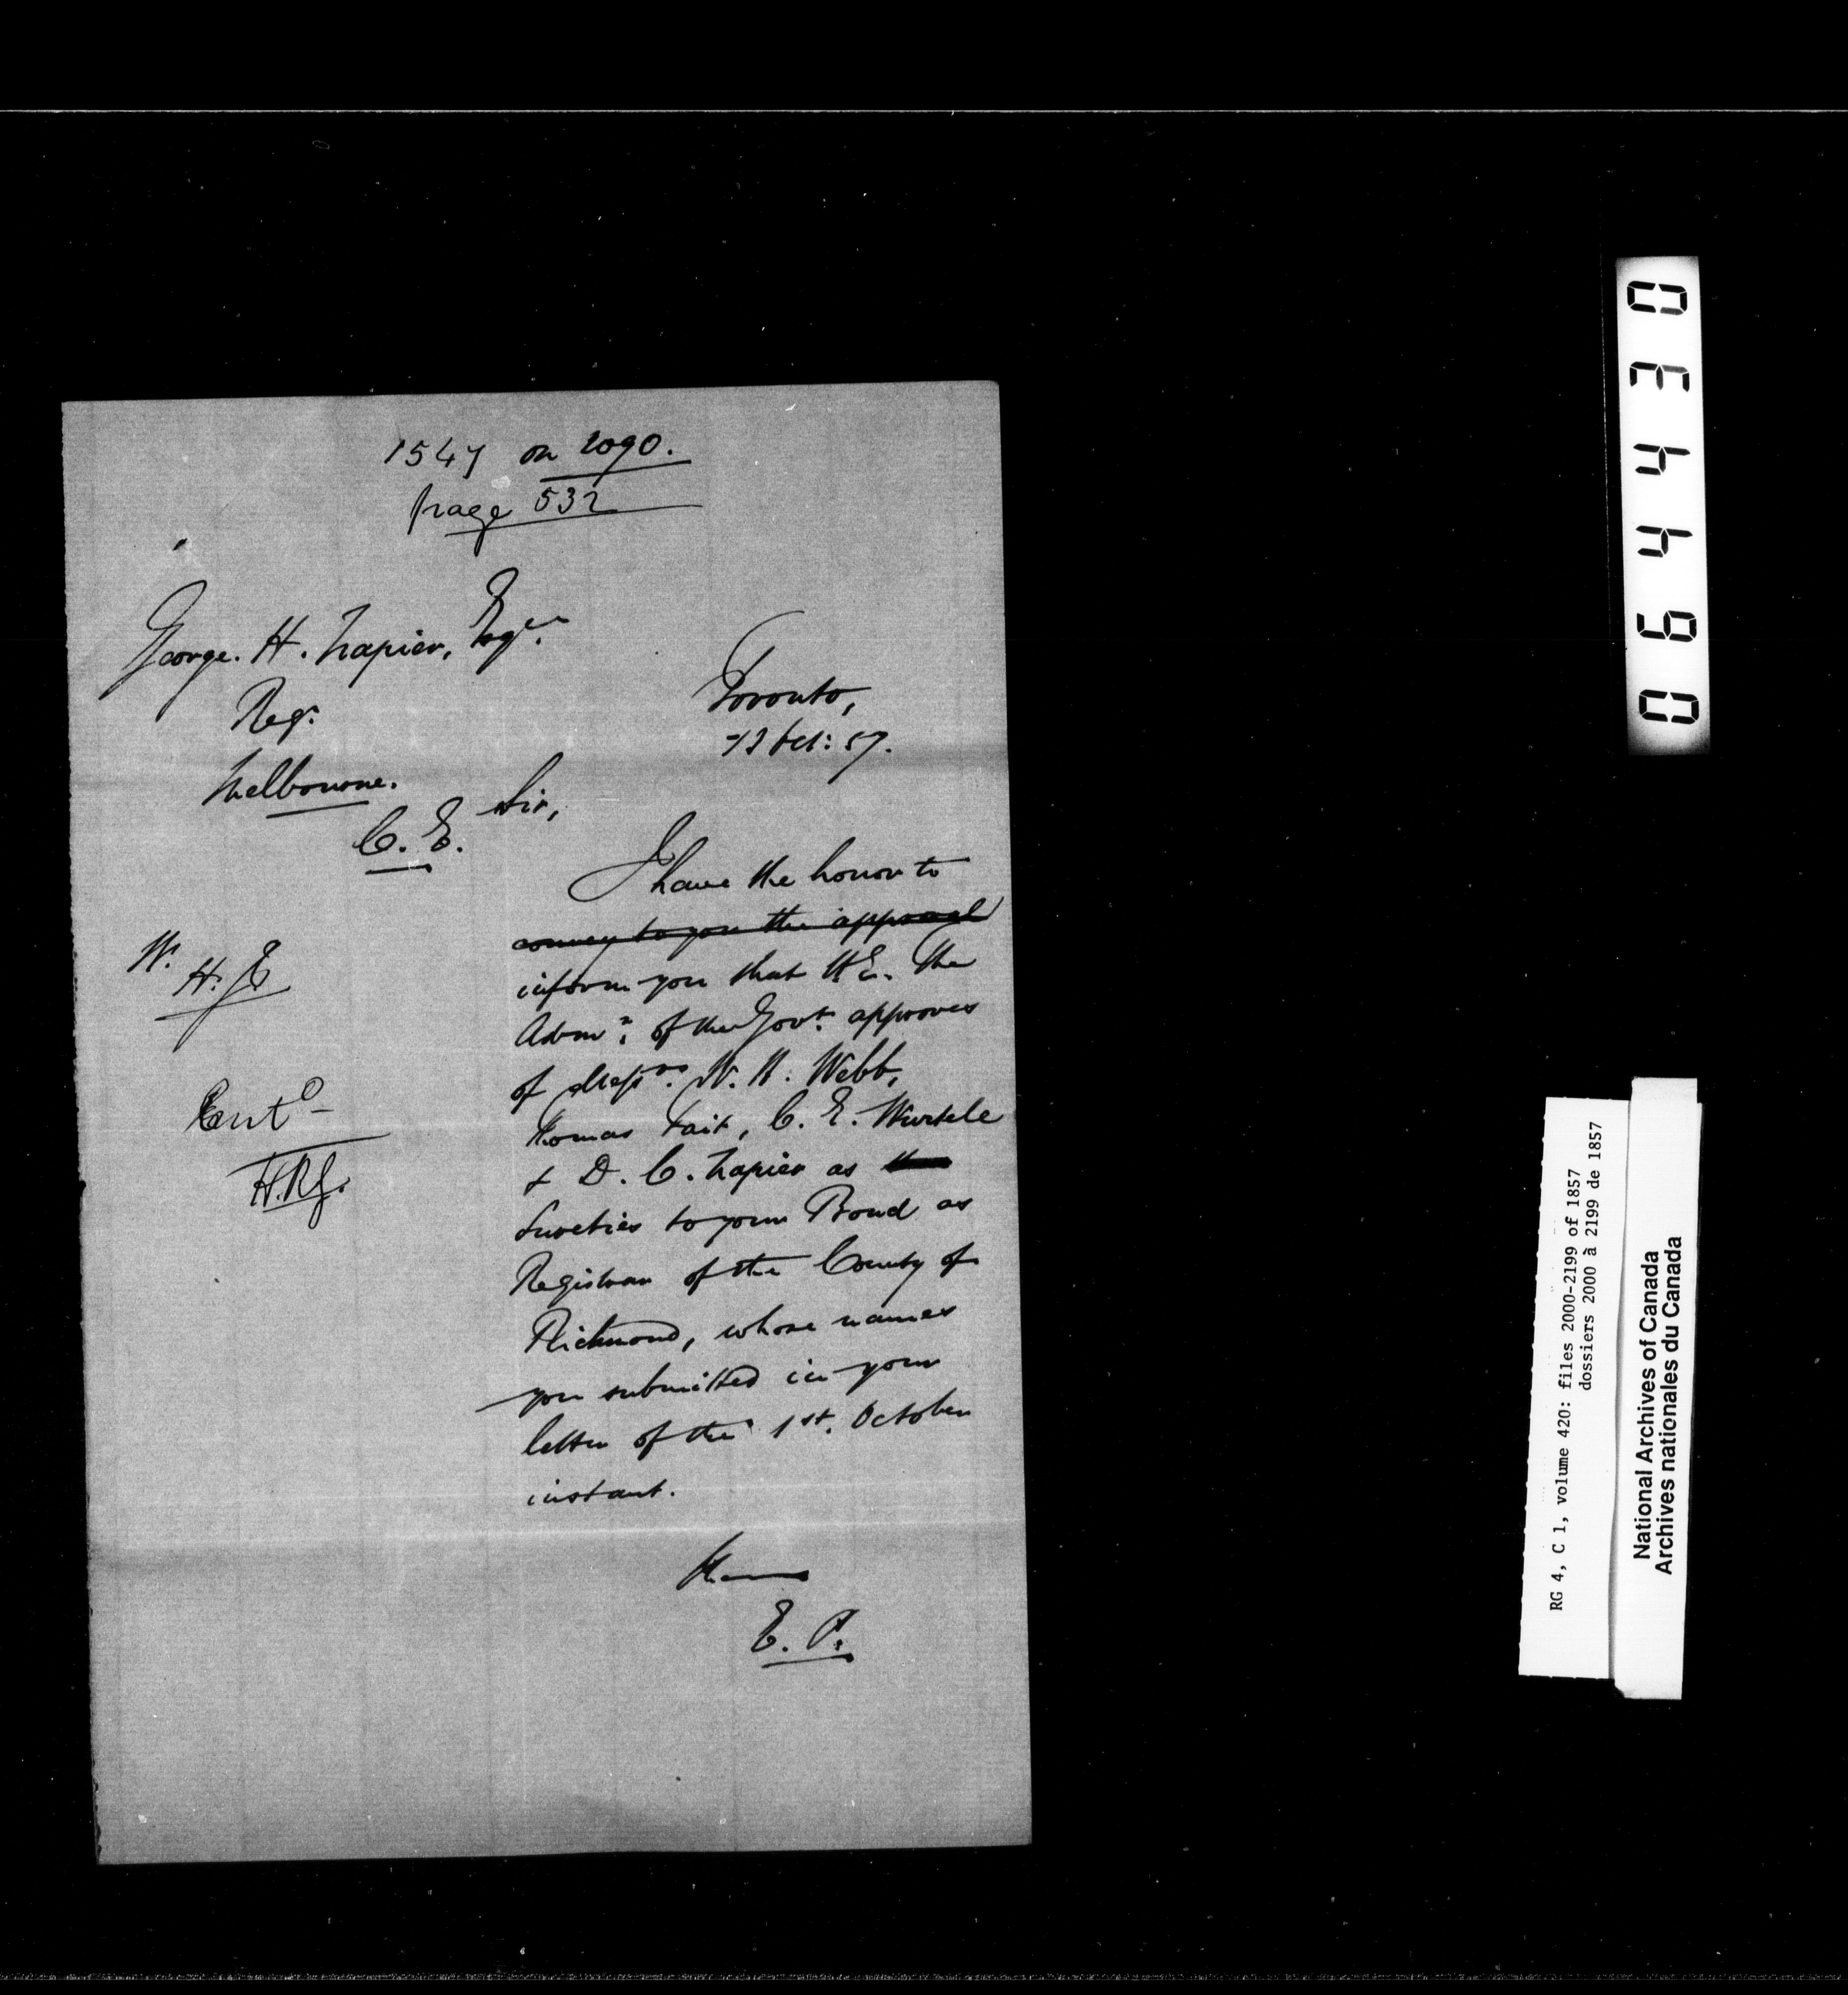 1547 on 2090.
page 532
George. H. Napier, Esqre.
Regr.
Melbourne.
C. E.
Toronto,
13 Oct: 57.
Sir,
I have the honor to
convey to you the approval
inform you that H.E. the
Admr. of the Govt. approves
of Messrs. W. H. Webb,
Thomas Tait, C. E. Wurtele
& D. C. Napier as the
Sureties to your Bond as
Registrar of the County of
Richmond, whose names
you submitted in your
letter of the 1st. October
instant.
E. P.
W.
H. E
Entd
060440
RG 4, C 1, volume 420: files 2000-2199 of 1857
dossiers 2000 à 2199 de 1857
National Archives of Canada
Archives nationales du Canada